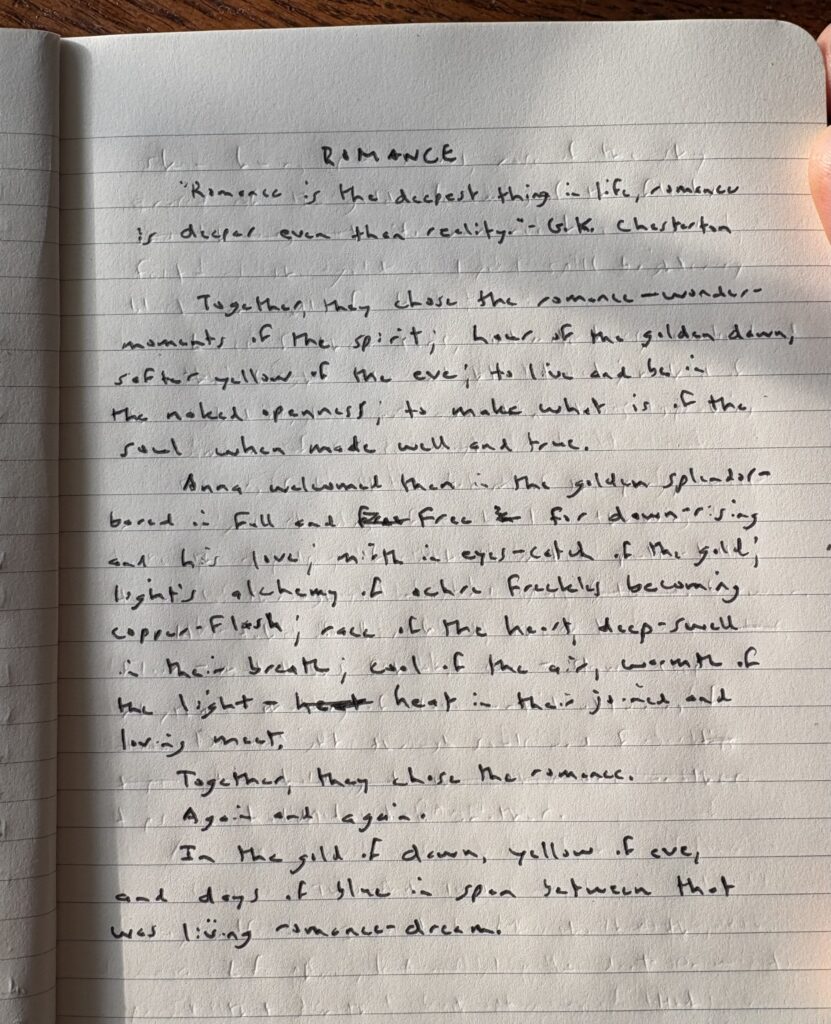 ROMANCE
"Romance is the deepest thing in life, romance
is deeper even than reality." - G.K. Chesterton
Together, they chose the romance-wonder-
moments of the spirit; hour of the golden dawn,
softer yellow of the eve; to live and be in
the naked openness; to make what is of the
soul when made well and true.
Anna welcomed then in the golden splendor-
bared in full and free for dawn-rising
and his love; mirth in eyes-catch of the gold;
light's alchemy of ochre freckles becoming
copper-flash; race of the heart, deep-swell
in their breath; cool of the air, warmth of
the light - heat in their joined and
loving meet.
Together, they chose the romance.
Again and again.
In the gold of dawn, yellow of eve,
and days of blue in span between that
was living romance-dream.